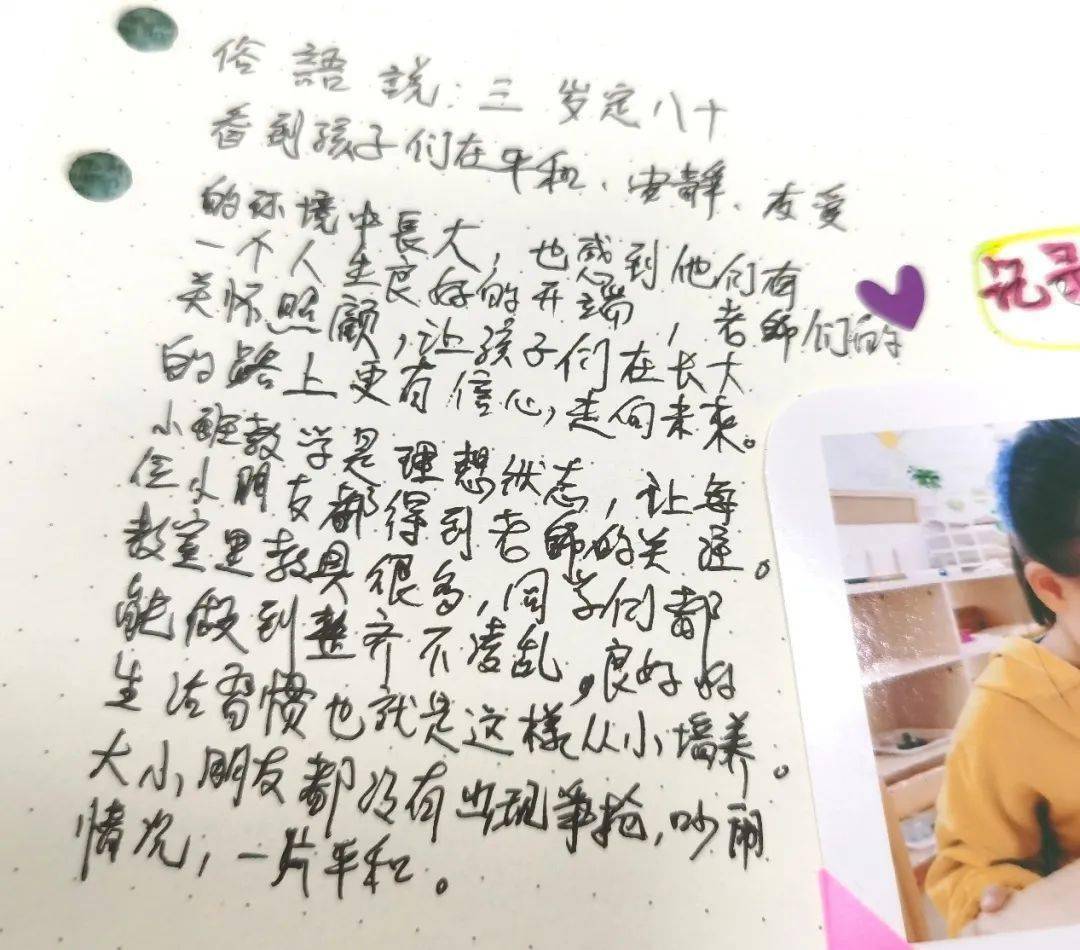 俗語説：三岁定八十
看到孩子们在平和、安静、友爱
的环境中長大，也感到他们有
一个人生良好的开端，老师们的
关怀照顧，让孩子们在长大
的路上更有信心，走向未来。
小班教学是理想状态，让每
位小朋友都得到老师的关注。
教室里教具很多，同学们都
能做到整齐不凌乱。良好的
生活習慣也就是这樣从小培养。
大小朋友都没有出现争抢，吵闹
情况，一片平和。
记录